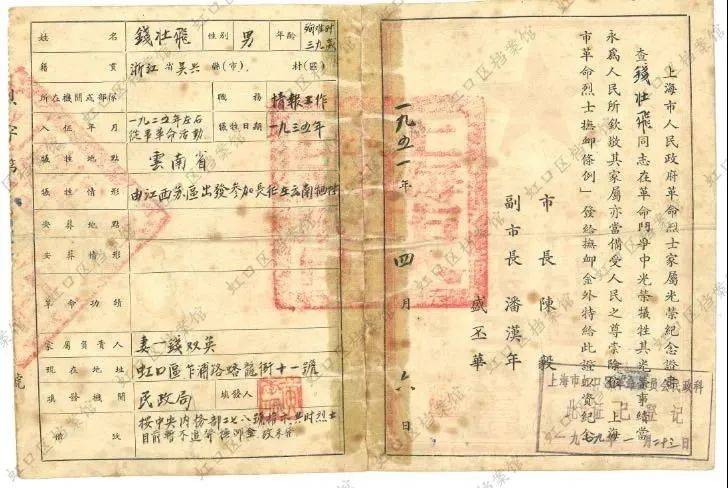 上海市人民政府革命烈士家屬光榮紀念證
查錢壯飛同志在革命鬥爭中光榮犧牲其光榮事績當
永為人民所欽敬其家屬亦當備受人民之尊崇除按上海
市革命烈士撫卹條例」發給撫卹金外特給此證以資紀念
市長 陳毅
副市長 潘漢年
盛丕華
一九五一年四月六日
上海市虹口區
此证已登记
一九七九年一月二十三日
姓名 錢壯飛 性別 男 年齡 殉难时三九歲
籍貫 浙江省吳興縣(市) 村(區)
所在機關或部隊 職務 情報工作
入伍年月 一九二五年左右從事革命活動 犧牲日期 一九三五年
犧牲地點 雲南省
犧牲情形 由江西苏區出發參加長征在云南牺牲
安葬地點
安葬情形
革命功績
家屬負責人 妻一錢双英
現在地址 虹口區乍浦路 龍街十一號
填發機關 民政局 填發人
備考 按中央内務部二七八號
目前暫不追
虹口区档案馆